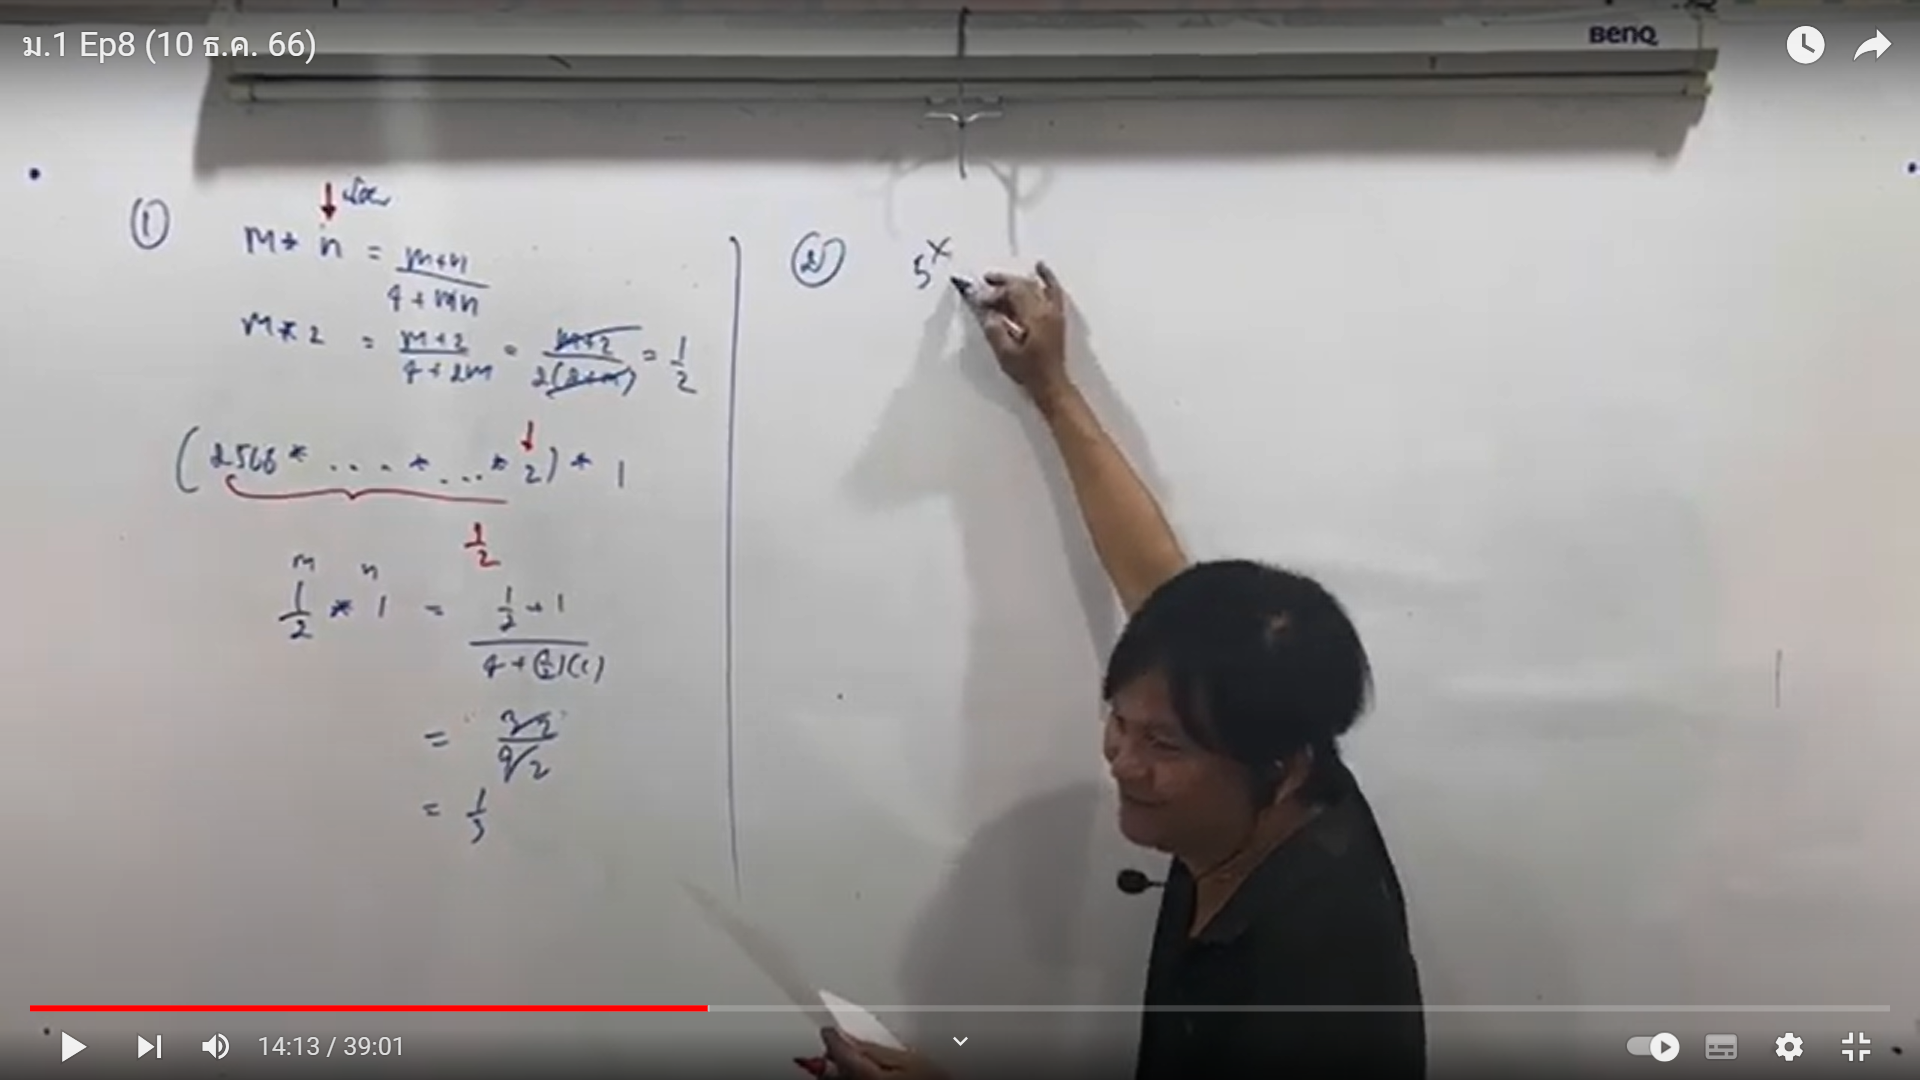 ม.1 Ep8 (10 ธ.ค. 66)
BenQ
①
m * n = (m+n)/(4+mn)
m * 2 = (m+2)/(4+2m) = (m+2)/(2(2+m)) = 1/2
(2566 * .... * ... * 2) * 1
1/2
m n
1/2 * 1 = (1/2 + 1)/(4 + (1/2)(1))
= (3/2)/(9/2)
= 1/3
② 5^x
14:13 / 39:01